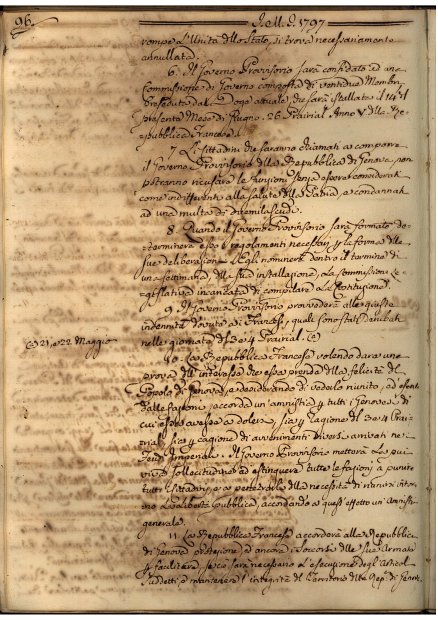 96.
I.M.I. 1797
rompe L'Unità dllo Stato, si trova necessariamente
annullata.
6. Il Governo Provvisorio sarà confidato ad una
Commissione di Governo composta di ventidue Membri
Preseduta dal Doge attuale, che sarà istallata il 14 d.l
presente Mese di Giugno. 26. Prairial Anno V. dlla Re-
pubblica Francese.
7. I Cittadini che saranno chiamati a comporre
il Governo Provvisorio dlla Repubblica di Genova non
potranno ricusare le funzioni senza essere considerati
come indifferenti alla salute dlla Patria, e condannati
ad una multa di duemila scudi.
8. Quando il Governo Provvisorio sarà formato de-
terminerà esso i regolamenti necessarj p la forma dlle
sue deliberazioni. Egli nominerà dentro il termine di
una settimana dlla sua installazione, la Commissione Le-
gislativa incaricata di compilare la Costituzione.
9. Il Governo Provvisorio provvederà alle giuste
indennità dovute a' Francesi, quali sono stati derubati
nelle giornate di 3 e 4 Prairial. (a)
(a) 21, e 22 Maggio
10. La Repubblica Francese volendo dare una
prova dll'interesse che essa prende dlla felicità del
Popolo di Genova, e desiderando di vederlo riunito, ed esente
dalle fazioni, accorda un'amnistia p tutti i Genovesi di
cui essa avesse a dolersi, sia p ragione del 3 e 4 Prai-
rial, sia p cagione di avvenimenti diversi arrivati nei
Feudi Imperiali. Il Governo Provvisorio metterà la più
viva sollecitudine ad estinguere tutte le fazioni, a riunire
tutti i Cittadini, e a persuaderli dlla necessità di riunirsi intorno
la libertà pubblica, accordando a quest'effetto un'Amnistia
generale.
11. La Repubblica Francese accorderà alla Repubblica
di Genova protezione, ed ancora i soccorsi dlle sue Armate
p facilitare, se ciò sarà necessario, l'esecuzione degli Articoli
suddetti, e mantenere l'integrità del Territorio dlla Rep. di Genova.